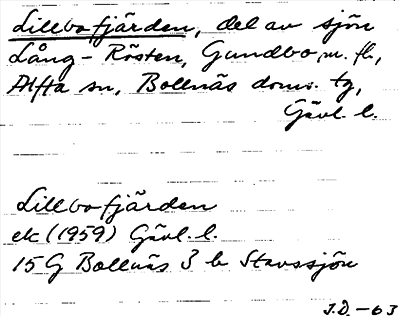 Lillbofjärden, del av sjön
Lång-Rösten, Gundbo m. fl.,
Alfta sn, Bollnäs doms. tg,
Gävl. l.
Lillbofjärden
ek (1959) Gävl. l.
15G Bollnäs 3 b Stavssjön
J.D.-63